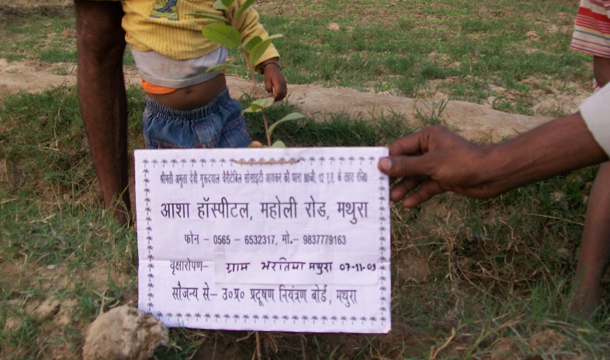 श्रीमती अमृता देवी गुरूदयाल चैरीटेबिल सोसाइटी आयकर की धारा 80जी, 12 ए.ए के तहत रजि०
आशा हॉस्पीटल, महोली रोड, मथुरा
फोन – 0565 – 6532317, मो.– 9837779163
वृक्षारोपण– ग्राम भरतिया मथुरा 07-11-09
सौजन्य से – उ०प्र० प्रदूषण नियंत्रण बोर्ड, मथुरा